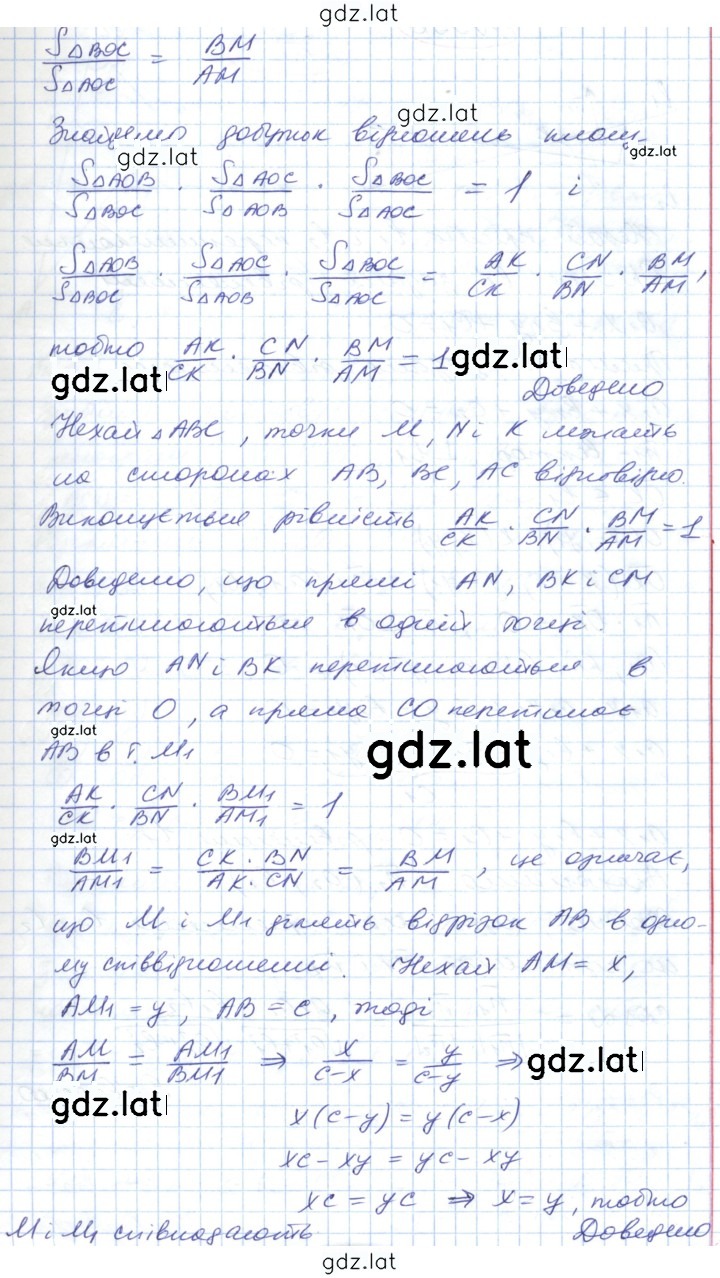 gdz.lat
S△BOC / S△AOC = BM / AM
gdz.lat
Знайдемо добуток відношень площ.
gdz.lat
gdz.lat
S△AOB / S△BOC · S△AOC / S△AOB · S△BOC / S△AOC = 1 і
S△AOB / S△BOC · S△AOC / S△AOB · S△BOC / S△AOC = AK / CK · CN / BN · BM / AM,
тобто AK / CK · CN / BN · BM / AM = 1
gdz.lat
gdz.lat
Доведено
Нехай △ABC, точки M, N і K лежать
на сторонах AB, BC, AC відповідно.
Виконується рівність AK / CK · CN / BN · BM / AM = 1
Доведемо, що прямі AN, BK і CM
gdz.lat
перетинаються в одній точці.
Якщо AN і BK перетинаються в
точці O, а пряма CO перетинає
gdz.lat
AB в т. M₁
gdz.lat
AK / CK · CN / BN · BM₁ / AM₁ = 1
gdz.lat
BM₁ / AM₁ = CK · BN / AK · CN = BM / AM, це означає,
що M і M₁ ділять відрізок AB в одно-
му співвідношенні. Нехай AM = x,
AM₁ = y, AB = c, тоді
AM / BM = AM₁ / BM₁ ⇒ x / c-x = y / c-y ⇒
gdz.lat
gdz.lat
x(c-y) = y(c-x)
xc - xy = yc - xy
xc = yc ⇒ x = y, тобто
M і M₁ співпадають Доведено
gdz.lat